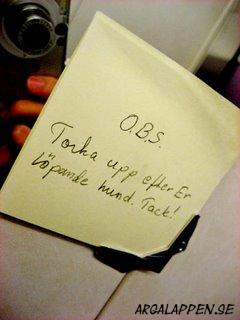 O.B.S.
Torka upp efter Er
löpande hund. Tack!
ARGALAPPEN.SE